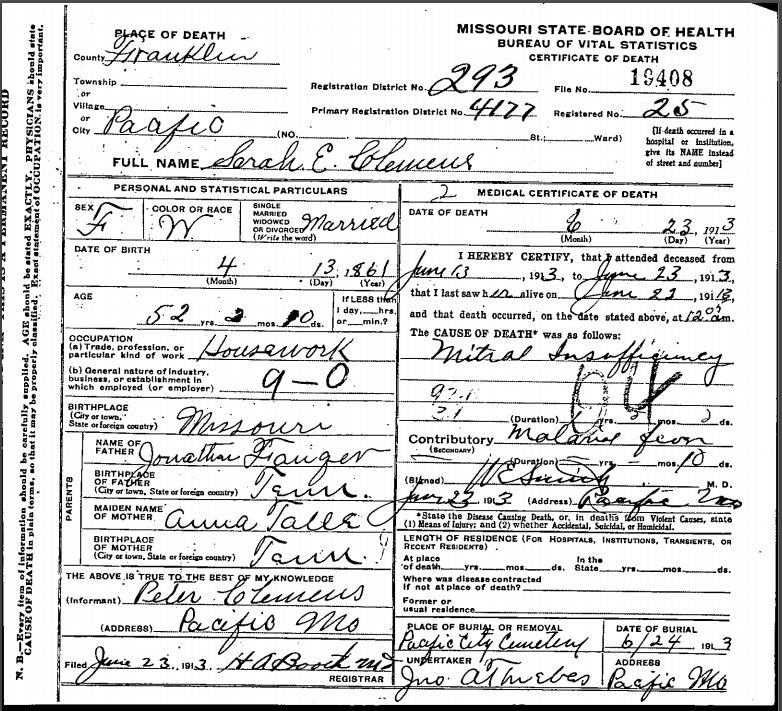 MISSOURI STATE BOARD OF HEALTH
BUREAU OF VITAL STATISTICS
CERTIFICATE OF DEATH
PLACE OF DEATH
County Franklin
Township
or
Village
or
City Pacific (NO. St.; Ward)
Registration District No. 293 File No. 19408
Primary Registration District No. 4177 Registered No. 25
[If death occurred in a
hospital or institution,
give its NAME instead
of street and number]
FULL NAME Sarah E. Clemens
PERSONAL AND STATISTICAL PARTICULARS
SEX F
COLOR OR RACE W
SINGLE
MARRIED
WIDOWED
OR DIVORCED
(Write the word) Married
DATE OF BIRTH
4 13, 1861
(Month) (Day) (Year)
AGE
52 yrs. 2 mos. 10 ds.
If LESS than
1 day, hrs.
or min.?
OCCUPATION
(a) Trade, profession, or
particular kind of work Housework
(b) General nature of industry,
business, or establishment in
which employed (or employer) 9-0
BIRTHPLACE
(City or town,
State or foreign country) Missouri
PARENTS
NAME OF
FATHER Jonathan
BIRTHPLACE
OF FATHER
(City or town, State or foreign country) Tenn.
MAIDEN NAME
OF MOTHER Anna
BIRTHPLACE
OF MOTHER
(City or town, State or foreign country) Tenn.
THE ABOVE IS TRUE TO THE BEST OF MY KNOWLEDGE
(Informant) Peter Clemens
(ADDRESS) Pacific Mo
Filed June 23, 1913. H A Booth MD
REGISTRAR
2 MEDICAL CERTIFICATE OF DEATH
DATE OF DEATH
6 23, 1913
(Month) (Day) (Year)
I HEREBY CERTIFY, that I attended deceased from
June 13, 1913, to June 23, 1913,
that I last saw her alive on June 23, 1913,
and that death occurred, on the date stated above, at 12 am.
The CAUSE OF DEATH* was as follows:
Mitral Insufficiency
(Duration) yrs. mos. ds.
Contributory Malarial fever
(SECONDARY)
(Duration) yrs. mos. 10 ds.
(Signed) W E Smith M. D.
June 23 1913 (Address) Pacific Mo
*State the Disease Causing Death, or, in deaths from Violent Causes, state
(1) Means of Injury; and (2) whether Accidental, Suicidal, or Homicidal.
LENGTH OF RESIDENCE (FOR HOSPITALS, INSTITUTIONS, TRANSIENTS, OR
RECENT RESIDENTS).
At place In the
of death yrs. mos. ds. State yrs. mos. ds.
Where was disease contracted
if not at place of death?
Former or
usual residence
PLACE OF BURIAL OR REMOVAL
Pacific City Cemetery
DATE OF BURIAL
6/24 1913
UNDERTAKER
Jno. A Thiebes
ADDRESS
Pacific Mo
N. B.—Every item of information should be carefully supplied. AGE should be stated EXACTLY. PHYSICIANS should state
CAUSE OF DEATH in plain terms, so that it may be properly classified. Exact statement of OCCUPATION is very important.
PERMANENT RECORD